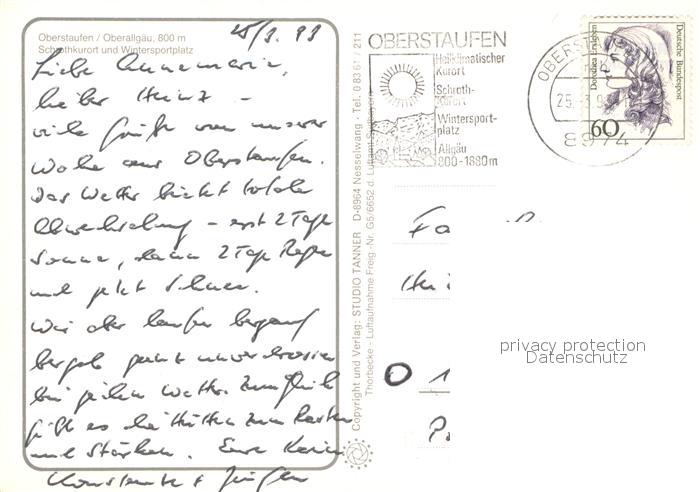 25/3. 93
Oberstaufen / Oberallgäu, 800 m
Schrothkurort und Wintersportplatz
Liebe Annemarie,
lieber Heinz –
viele Grüße von unserer
Woche aus Oberstaufen.
Das Wetter bietet totale
Abwechslung – erst 2 Tage
Sonne, dann 2 Tage Regen
und jetzt Schnee.
Wir aber laufen bergauf
bergab ganz unverdrossen
bei jedem Wetter. Zum Glück
gibt es die Hütten zum Rasten
und Stärken. Eure Karin
Konstantin + Jürgen
Copyright und Verlag: STUDIO TANNER D-8964 Nesselwang · Tel. 0 83 61 / 211
Thorbecke - Luftaufnahme Freig.-Nr. G5/6652 d. Luftamt Südbayern
OBERSTAUFEN
Heilklimatischer
Kurort
Schroth-
Kurort
Wintersport-
platz
Allgäu
800-1880m
OBERSTAUFEN
25.-3.9
8974
Dorothea Erxleben
Deutsche Bundespost
60
Fa
Hei
O 1
privacy protection
Datenschutz